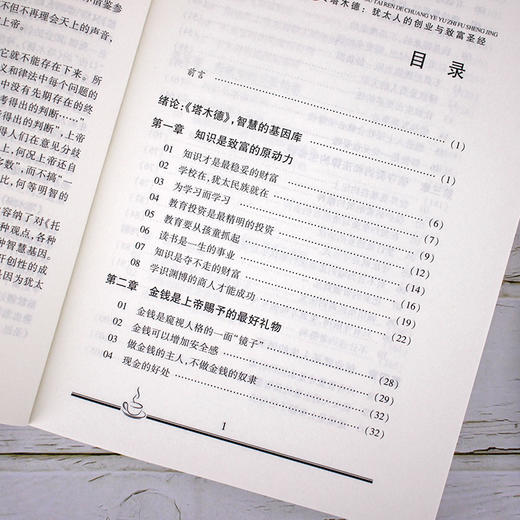 借鉴参
不但不再理会天上的声音,
上帝。
它就不能存在下来。所
义和律法中每个问题的
中没有先期存在的终
考得出的判断……"
得出的判断",上帝
得人们在意见分歧
上,何况上帝还自
字数",而不搞"一
比,何等明智的
容纳了对《托
种观点,各种
种智慧基因。
开创性的成
是因为犹太
TAI REN DE CHUANG YE YU ZHI FU SHENG JING
塔木德:犹太人的创业与致富圣经
目 录
前言 (1)
绪论:《塔木德》,智慧的基因库 (1)
第一章 知识是致富的原动力
01 知识才是最稳妥的财富 (6)
02 学校在,犹太民族就在 (7)
03 为学习而学习 (9)
04 教育投资是最精明的投资 (12)
05 教育要从孩童抓起 (14)
06 读书是一生的事业 (16)
07 知识是夺不走的财富 (19)
08 学识渊博的商人才能成功 (22)
第二章 金钱是上帝赐予的最好礼物
01 金钱是窥视人格的一面"镜子" (28)
02 金钱可以增加安全感 (29)
03 做金钱的主人,不做金钱的奴隶 (32)
04 现金的好处 (32)
1